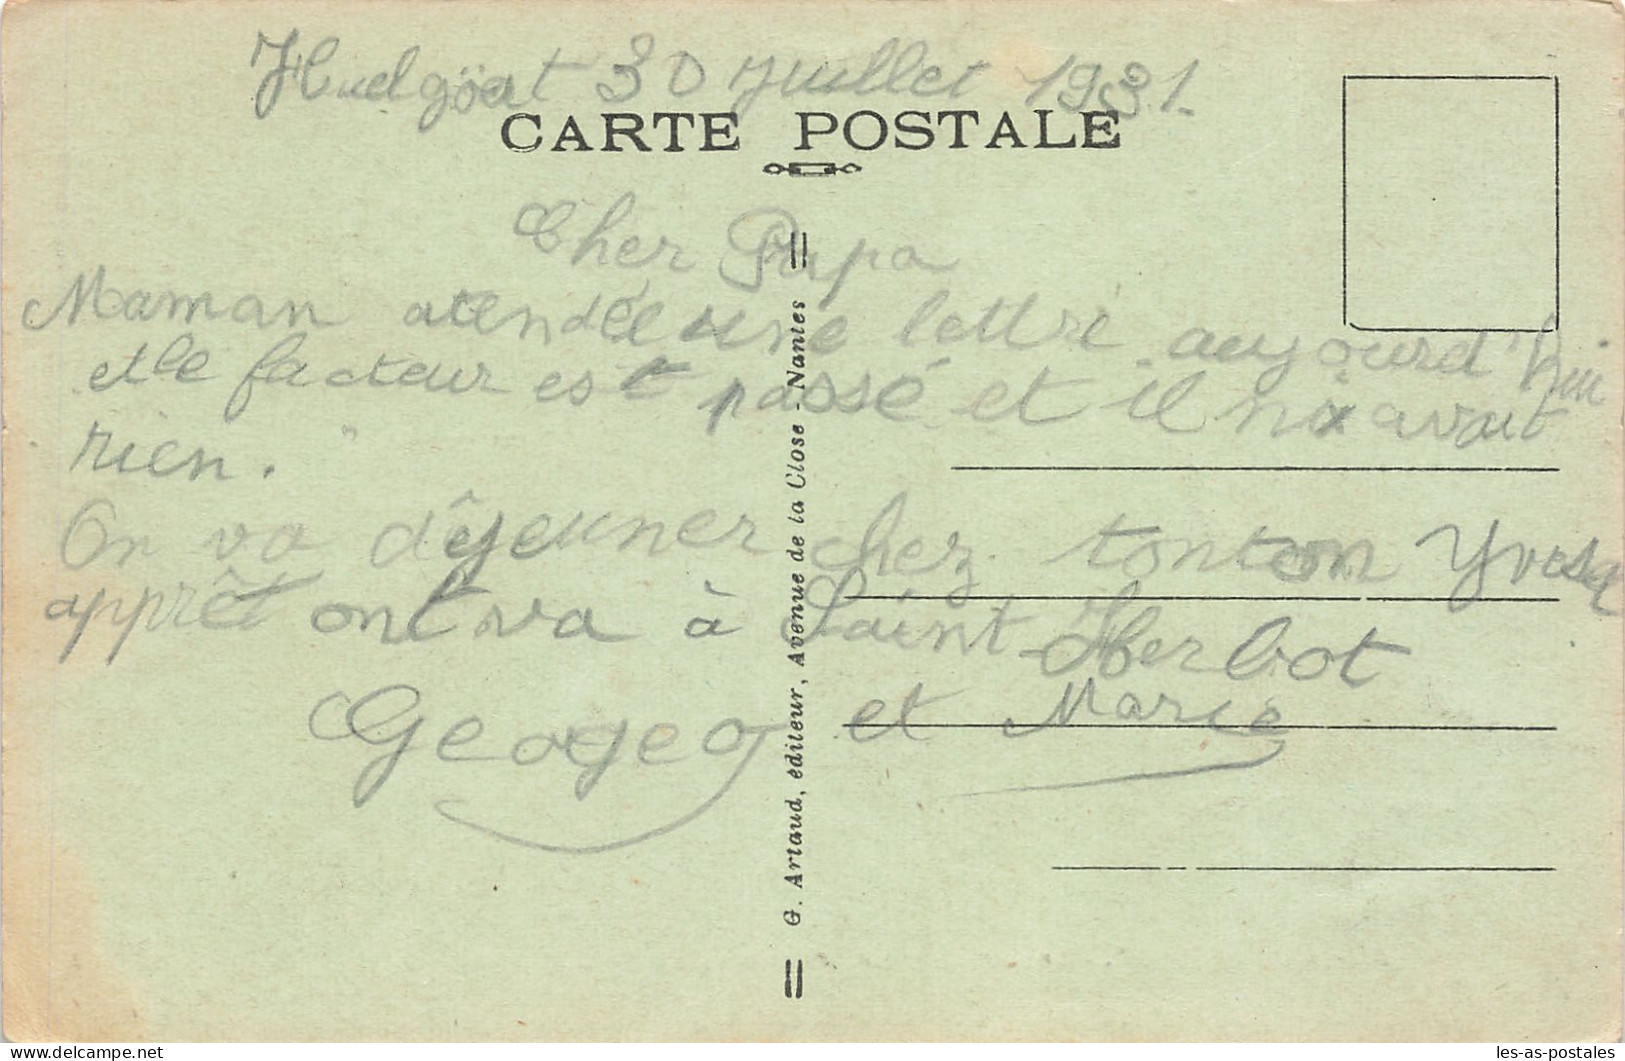 Huelgöat 30 Juillet 1931.
CARTE POSTALE
Cher Papa
Maman atendée une lettre aujourd'hui
et le facteur est passé et il n'i avait
rien.
On va déjeuner chez tonton Yves
apprêt ont va à Saint Herbot
Geoges et Marie
G. Artaud, éditeur, Avenue de la Close - Nantes
les-as-postales